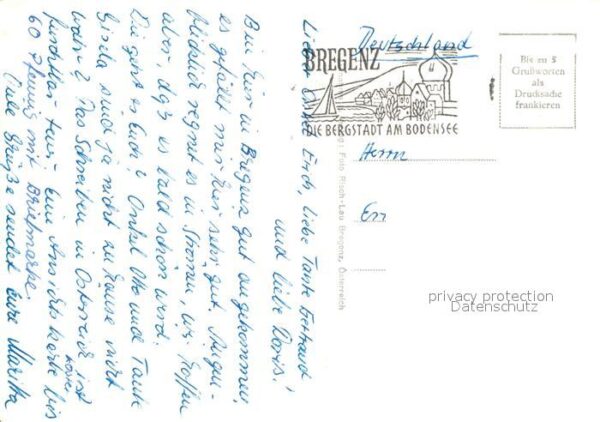 Lieber Onkel Erich, liebe Tante Gertraud
und liebe Doris!
Bin hier in Bregenz gut angekommen,
es gefällt mir hier sehr gut. Augen-
blicklich regnet es in Strömen, wir hoffen
aber, daß es bald schön wird.
Wie geht es Euch? Onkel Otto und Tante
Gisela sind ja nicht zu Hause nicht
wahr? Das Schreiben in Österreich ist
furchtbar teuer. Eine Ansichtskarte kostet
60 Pfennig mit Briefmarke.
Viele Grüße sendet Eure Marita
Deutschland
BREGENZ
DIE BERGSTADT AM BODENSEE
Bis zu 5
Grußworten
als
Drucksache
frankieren
Herrn
Er
Foto Risch-Lau Bregenz, Österreich
privacy protection
Datenschutz